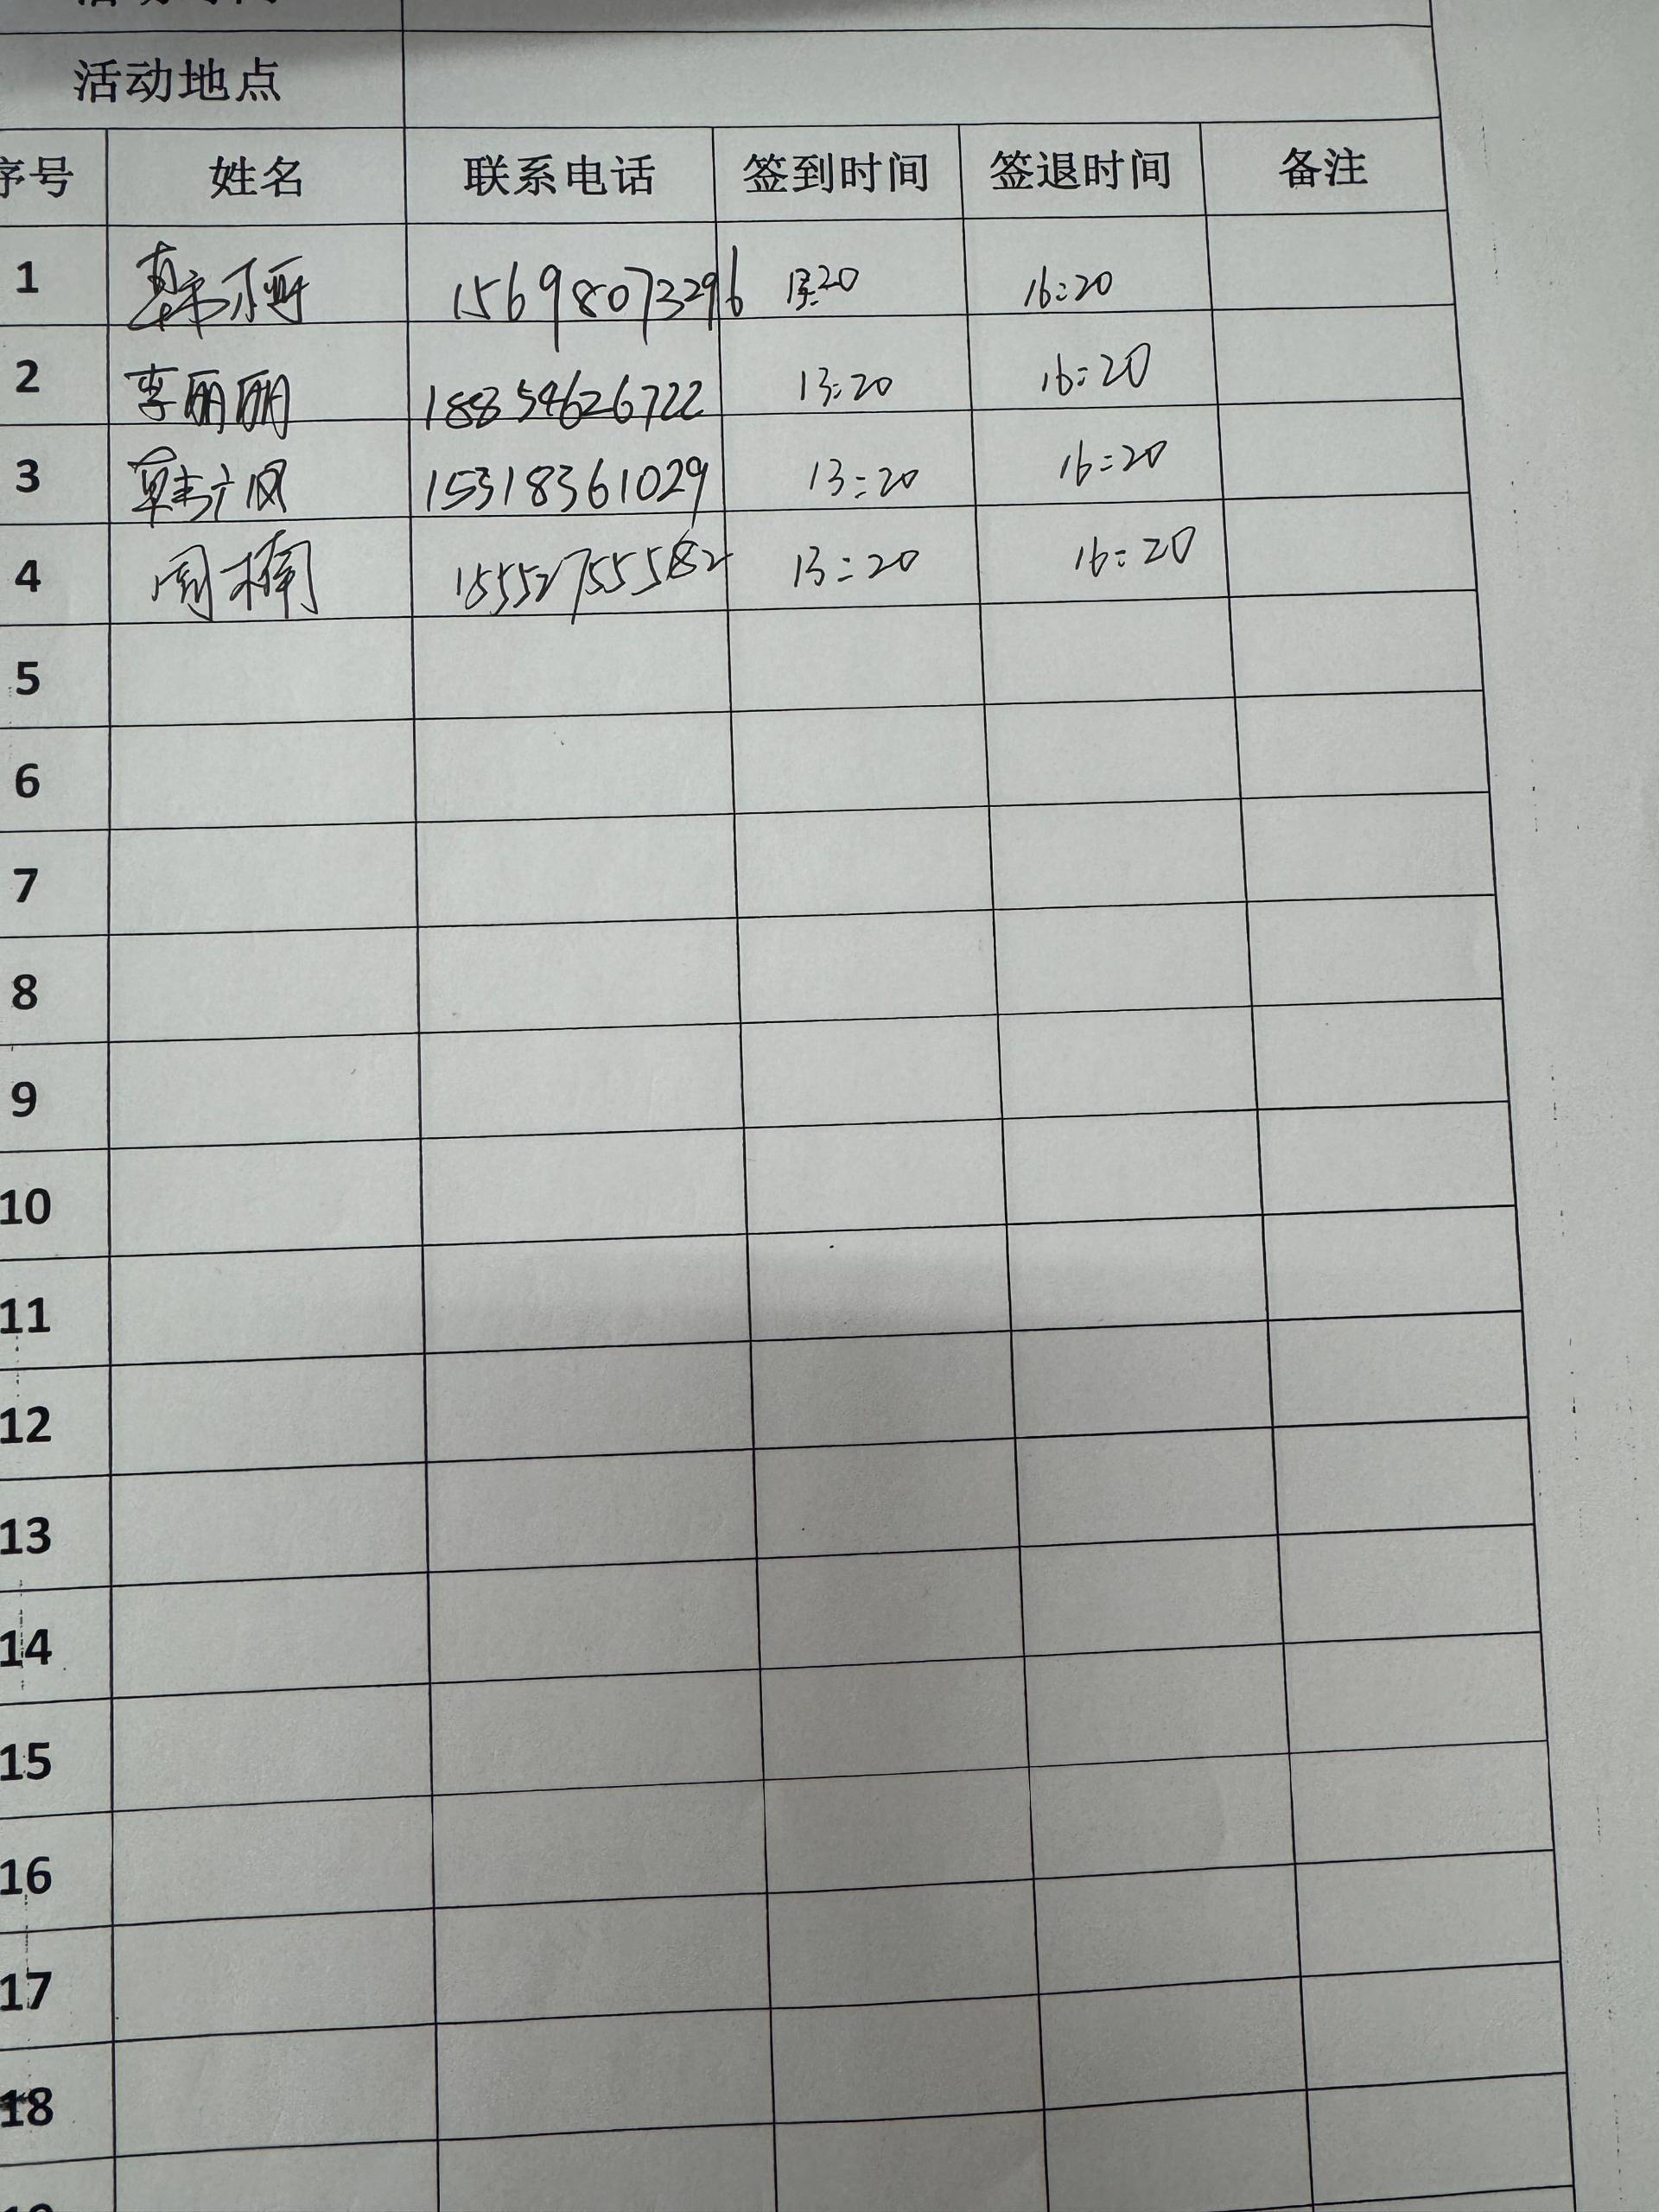 活动地点
序号 姓名 联系电话 签到时间 签退时间 备注
1 15698073296 13:20 16:20
2 李丽丽 18854626722 13:20 16:20
3 15318361029 13:20 16:20
4 周楠 13:20 16:20
5
6
7
8
9
10
11
12
13
14
15
16
17
18